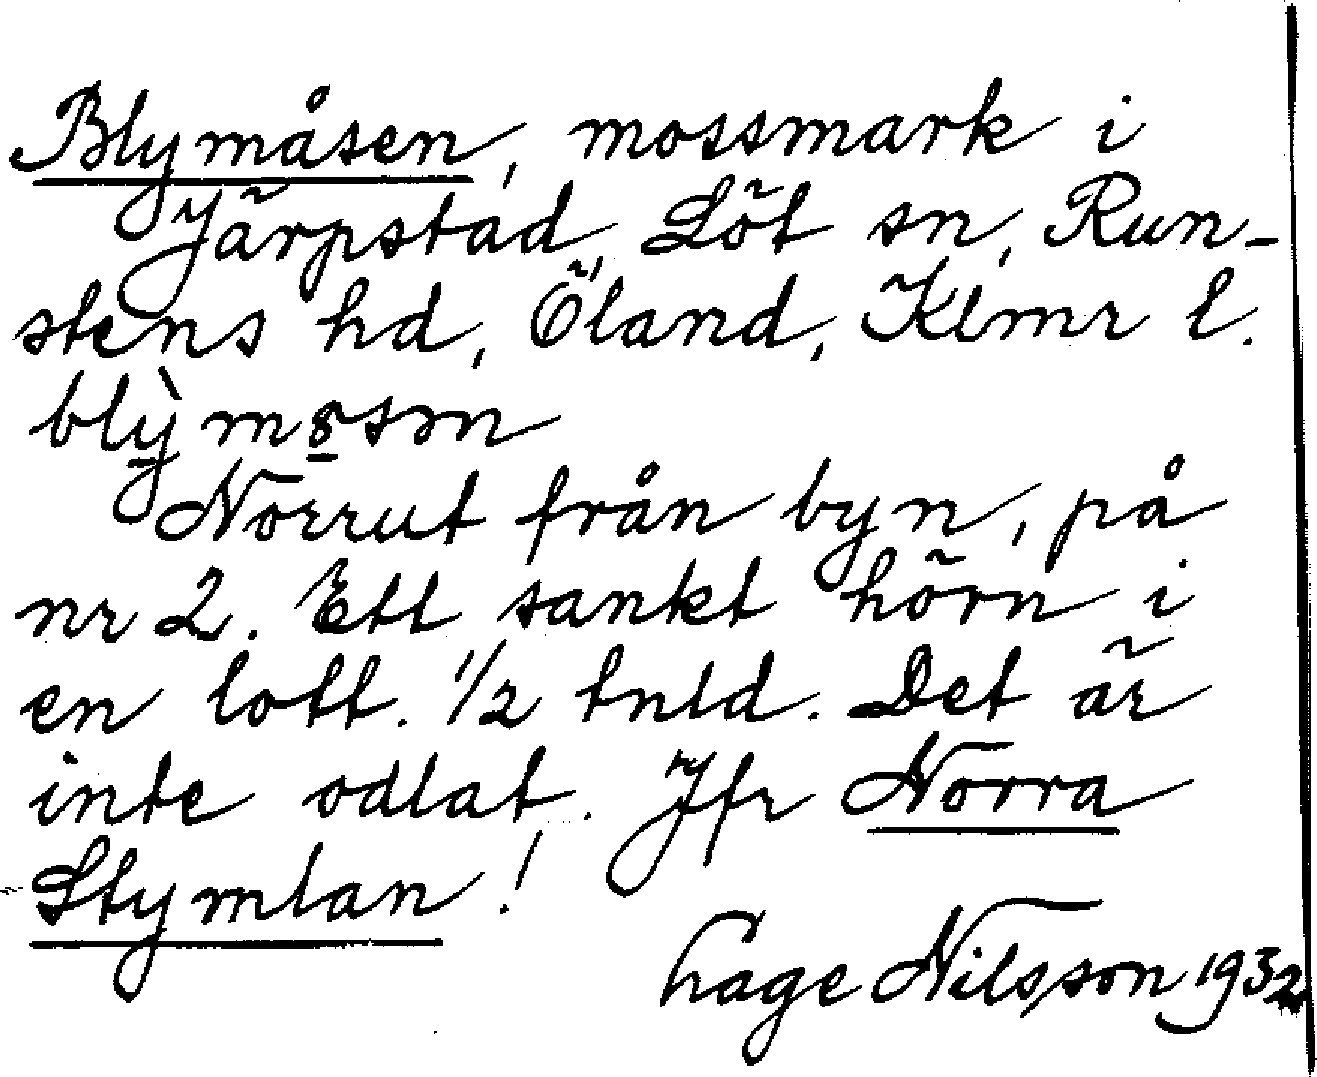 Blymåsen, mossmark i
Järpstad, Löt sn, Run-
stens hd, Öland, Klmr l.
blỳmɞsən
Norrut från byn, på
nr 2. Ett sankt hörn i
en lott. 1/2 tnld. Det är
inte odlat. Jfr Norra
Stymlan!
Hage Nilsson 1932